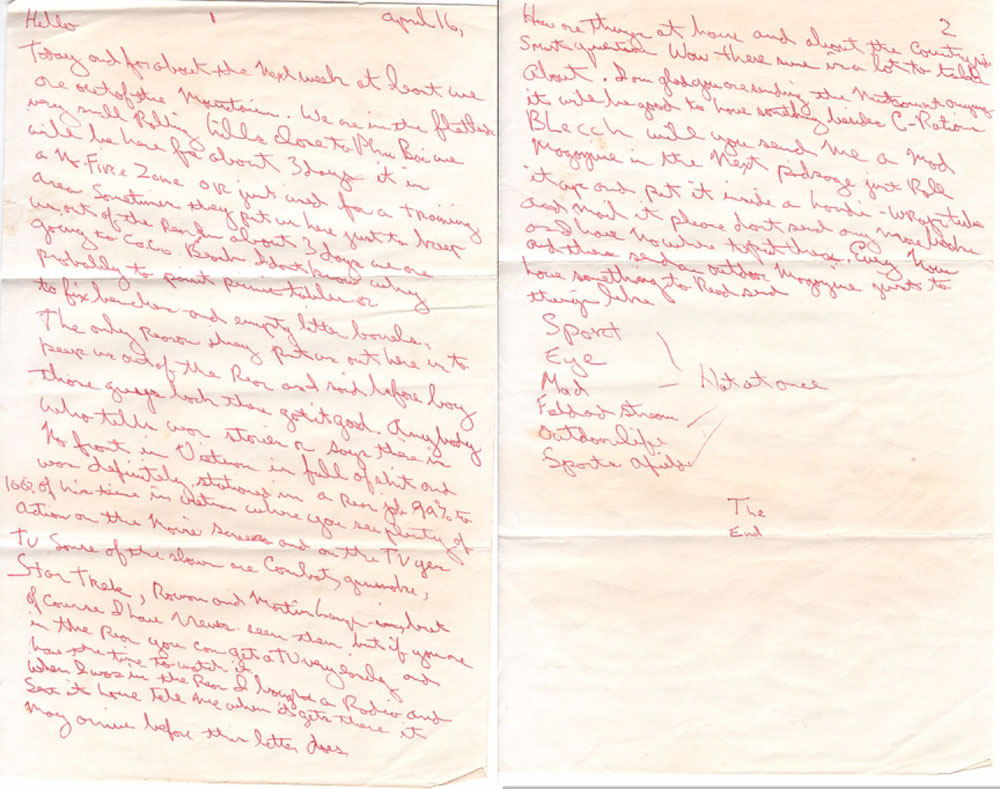 1
Hello April 16,
Today and for about the next week at least we
are out of the Mountains. We are in the flatland
very small Rolling hills close to Phu Bai we
will be here for about 3 days it is
a No Fire Zone OR just used for a training
area Sometimes they put us here just to keep
us out of the Rear. In about 3 days we are
going to CoCo Beach I dont know why
probably to paint picnic tables or
to fix benches and empty litter barrels.
The only reason they put us out here is to
keep us out of the Rear and said before boy
those guys back there got it good. Anybody
who tells war stories or says there is
No front in Vietnam is full of shit and
was definitely stationed in a Rear job 99% to
100% of his time in Vietnam where you see plenty of
action on the Movie Screen and on the TV yea
TV Some of the shows are Combat, gunsmoke,
Star Trek, Rowan and Martin but
of Course I have Never seen them but if you are
in the Rear you can get a TV very easily and
have the time to watch it
When I was in the Rear I bought a Radio and
Sent it home tell me when it gets there it
may arrive before this letter does
2
How are things at home and about the Country is
question Wow there sure is a lot to talk
About. I am glad you are sending the
it will be good to have besides C-Ration
BLecch will you send me a Mad
Magazine in the Next package just Roll
it up and put it inside a tube
and mail it please dont send any more books
as I have No where to put them. Every Now
and then send an outdoor Magazine just to
have something to Read send
things like
Sport
Eye
Mad
Not at once
Field and stream
Outdoor life
Sports afield
The
End